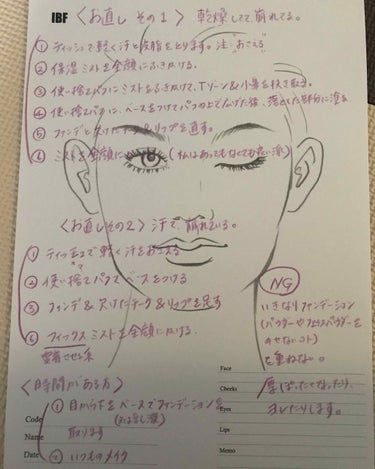 IBF 〈お直し その1〉 乾燥して、崩れてる。
① ティッシュで軽く汗と皮脂をとります。注:おさえる
② 保湿ミストを全顔にふきかける。
③ 使い捨てパフにミストをふきかけて、Tゾーン&小鼻を拭き取る。
④ 使い捨てパフに、ベースをつけてパフの上で広げた後、落とした部分に塗る
⑤ ファンデと欠けたチーク&リップを直す。
⑥ ミストを全顔に (私はあってもなくても良い派)
〈お直しその2〉汗で、崩れている。
① ティッシュで軽く汗をおさえる
② 使い捨てパフでベースをつける
③ ファンデ&欠けたチーク&リップを足す
⑥ フィックスミストを全顔にかける。
密着させる系
NG
いきなりファンデーション
(パウダーやフェイスパウダーを
のせないコト)
を重ねない。
厚ぼったくなったり、
ヨレたりします。
〈時間がある方〉
① 目から下をベースでファンデーションを
取ります
② いつものメイク
Code
Name
Date
Face
Cheeks
Eyes
Lips
Memo